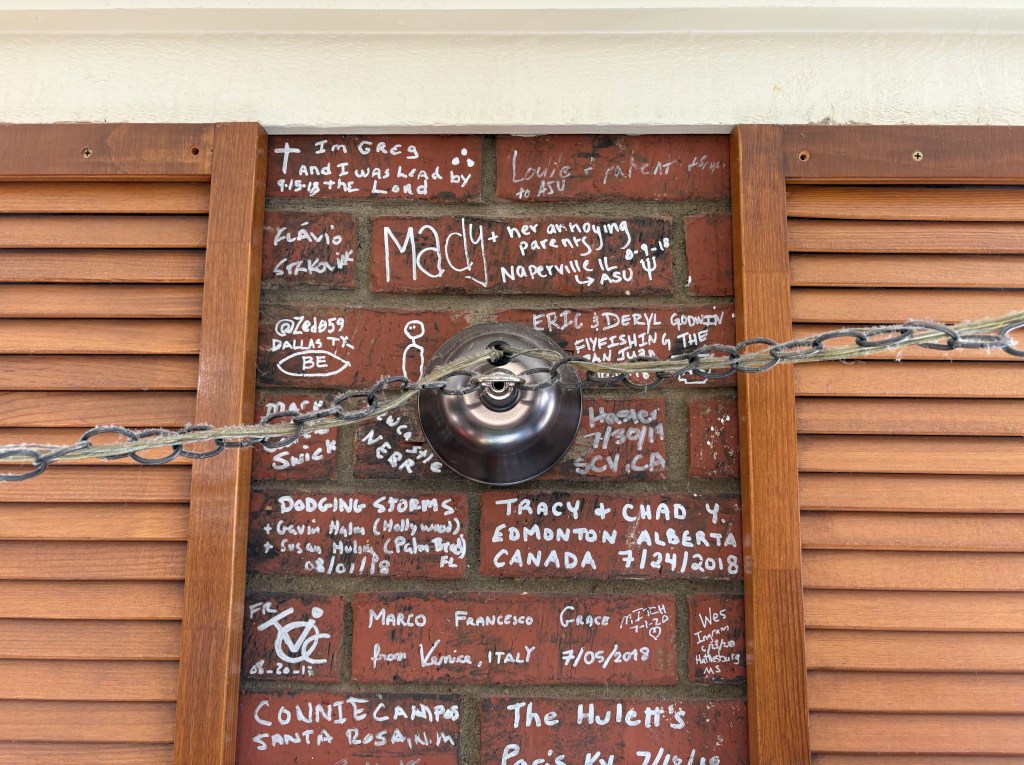 Im GREG
and I was lead by
9-15-18 the LORD
Louie + parent
to ASU
FLÁVIO
Mady + her annoying
parents
8-9-18
Naperville IL
↳ ASU
@Zedo59
DALLAS TX
BE
ERIC & DERYL GODWIN
FLYFISHING THE
SAN JUAN
NEBR
7/30/19
SCV, CA
DODGING STORMS
+ Gavin Halm (Hollywood)
+ Susan
08/01/18 FL
TRACY + CHAD Y.
EDMONTON ALBERTA
CANADA 7/24/2018
FR
08-20-18
MARCO FRANCESCO GRACE
from Venice, ITALY 7/05/2018
7-1-20
Wes
Ingram
MS
CONNIE CAMPOS
SANTA ROSA, N.M
The Hulett's
Paris Ky 7/18/18